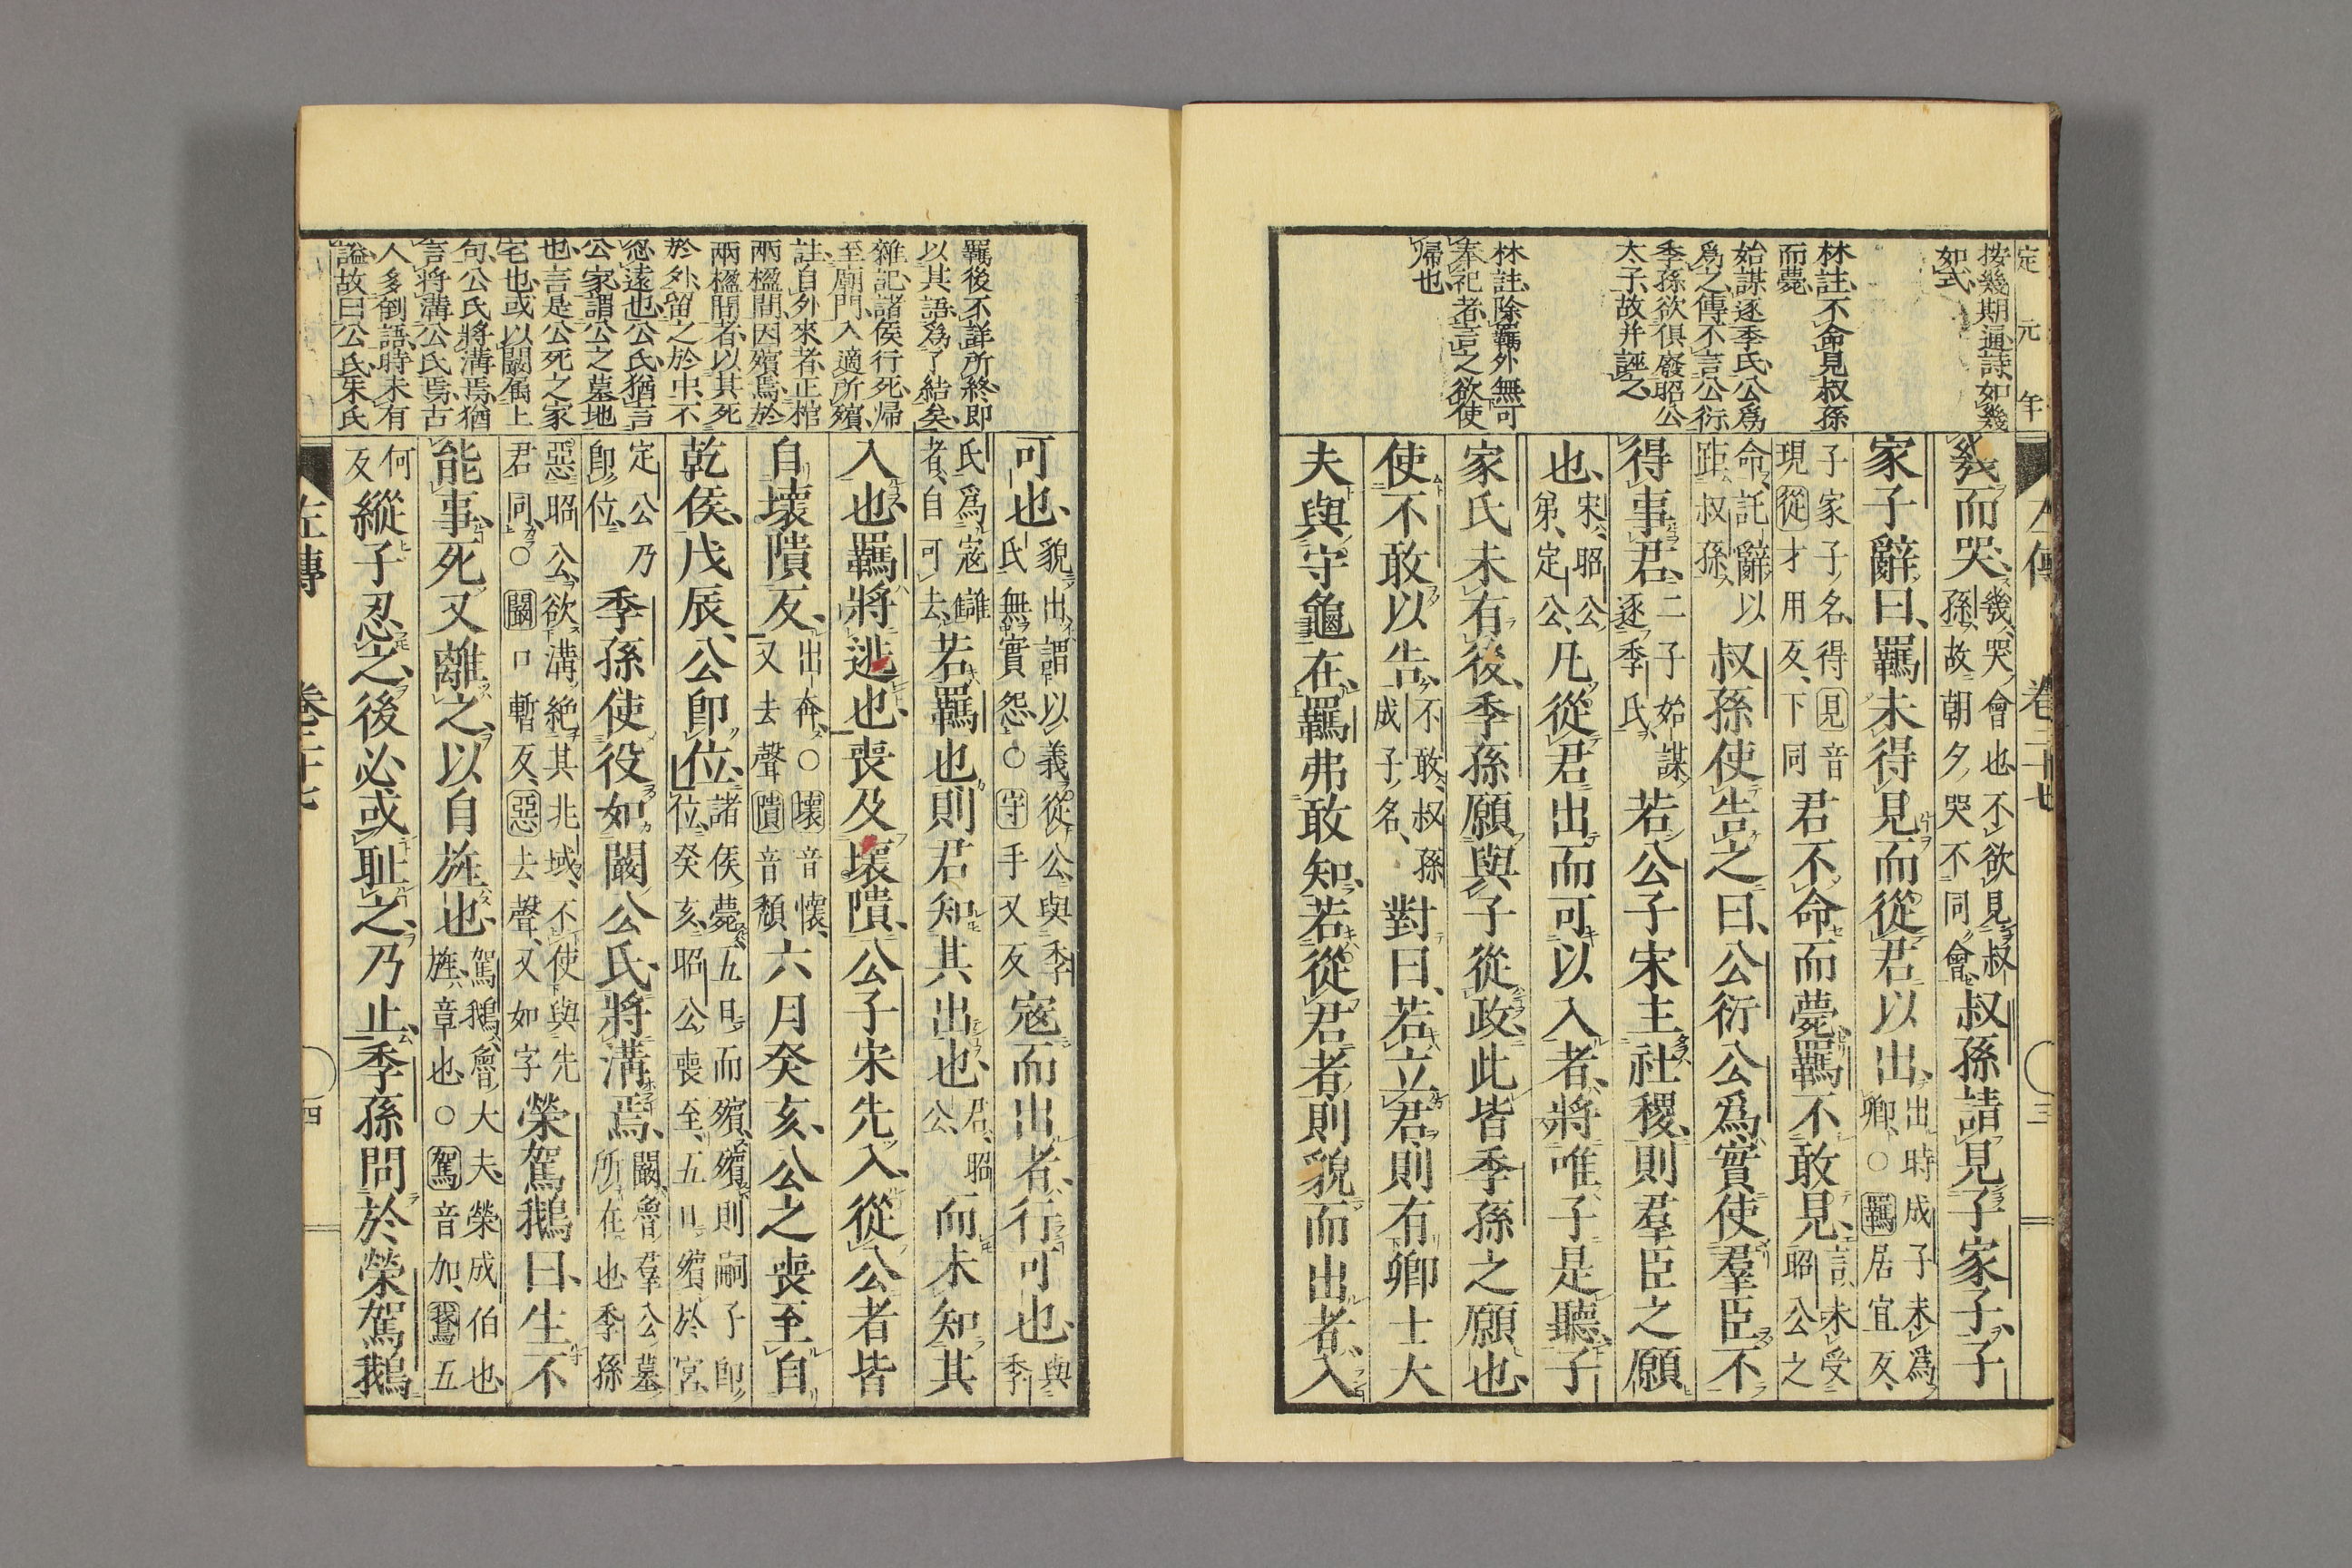 定元年
按幾期通詩如幾
如式
林註不命見叔孫
而薨
始謀逐季氏公爲
爲之傳不言公衍
季孫欲俱廢昭公
太子故并誣之
林註除羈外無可
奉祀者言之欲使
帰也
左傳 卷二十七 三
幾而哭幾哭會也不欲見叔
孫故朝夕哭不同會叔孫請見子家子子
家子辭曰羈未得見而從君以出出時成子未爲
卿○羈居宜反
子家子名得見音
現從才用反下同君不命而薨羈不敢見言未受
昭公之
命託辭以
距叔孫叔孫使告之曰公衍公爲實使羣臣不
得事君二子始謀
逐季氏若公子宋主社稷則羣臣之願
也宋昭公
弟定公凡從君出而可以入者將唯子是聽子
家氏未有後季孫願與子從政此皆季孫之願也
使不敢以告不敢叔孫
成子名對曰若立君則有卿士大
夫與守龜在羈弗敢知若從君者則貌而出者入
可也貌出謂以義從公與季
氏無實怨○守手又反寇而出者行可也與季
氏爲寇讎
者自可去若羈也則君知其出也君昭
公而未知其
入也羈將逃也喪及壞隤公子宋先入從公者皆
自壞隤反出奔○壞音懷
又去聲隤音頹六月癸亥公之喪至自
乾侯戊辰公即位諸侯薨五日而殯殯則嗣子即
位癸亥昭公喪至五日殯於宮
定公乃
即位季孫使役如闞公氏將溝焉闞魯羣公墓
所在也季孫
惡昭公欲溝絶其兆域不使與先
君同○闞口暫反惡去聲又如字榮駕鵝曰生不
能事死又離之以自旌也駕鵝魯大夫榮成伯也
旌章也○駕音加鵝五
何
反縱子忍之後必或恥之乃止季孫問於榮駕鵝
羈後不詳所終即
以其語爲了結矣
雜記諸侯行死帰
至廟門入適所殯
註自外來者正棺
兩楹間因殯焉於
兩楹間者以其死
於外留之於中不
忍遠也公氏猶言
公家謂公之墓地
也言是公死之家
宅也或以闞屬上
句公氏將溝焉猶
言將溝公氏焉古
人多倒語時未有
謚故曰公氏朱氏
左傳 卷二十七 四